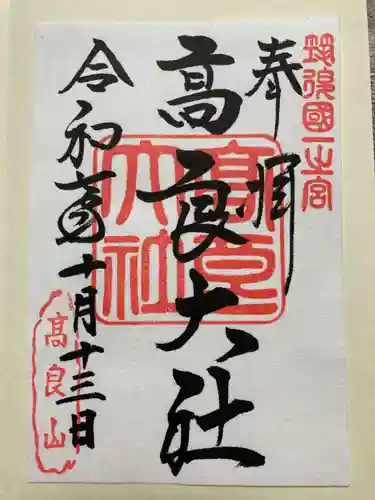 筑後國一之宮
奉拝
高良大社
高良大社
令和壱年十月十三日
高良山